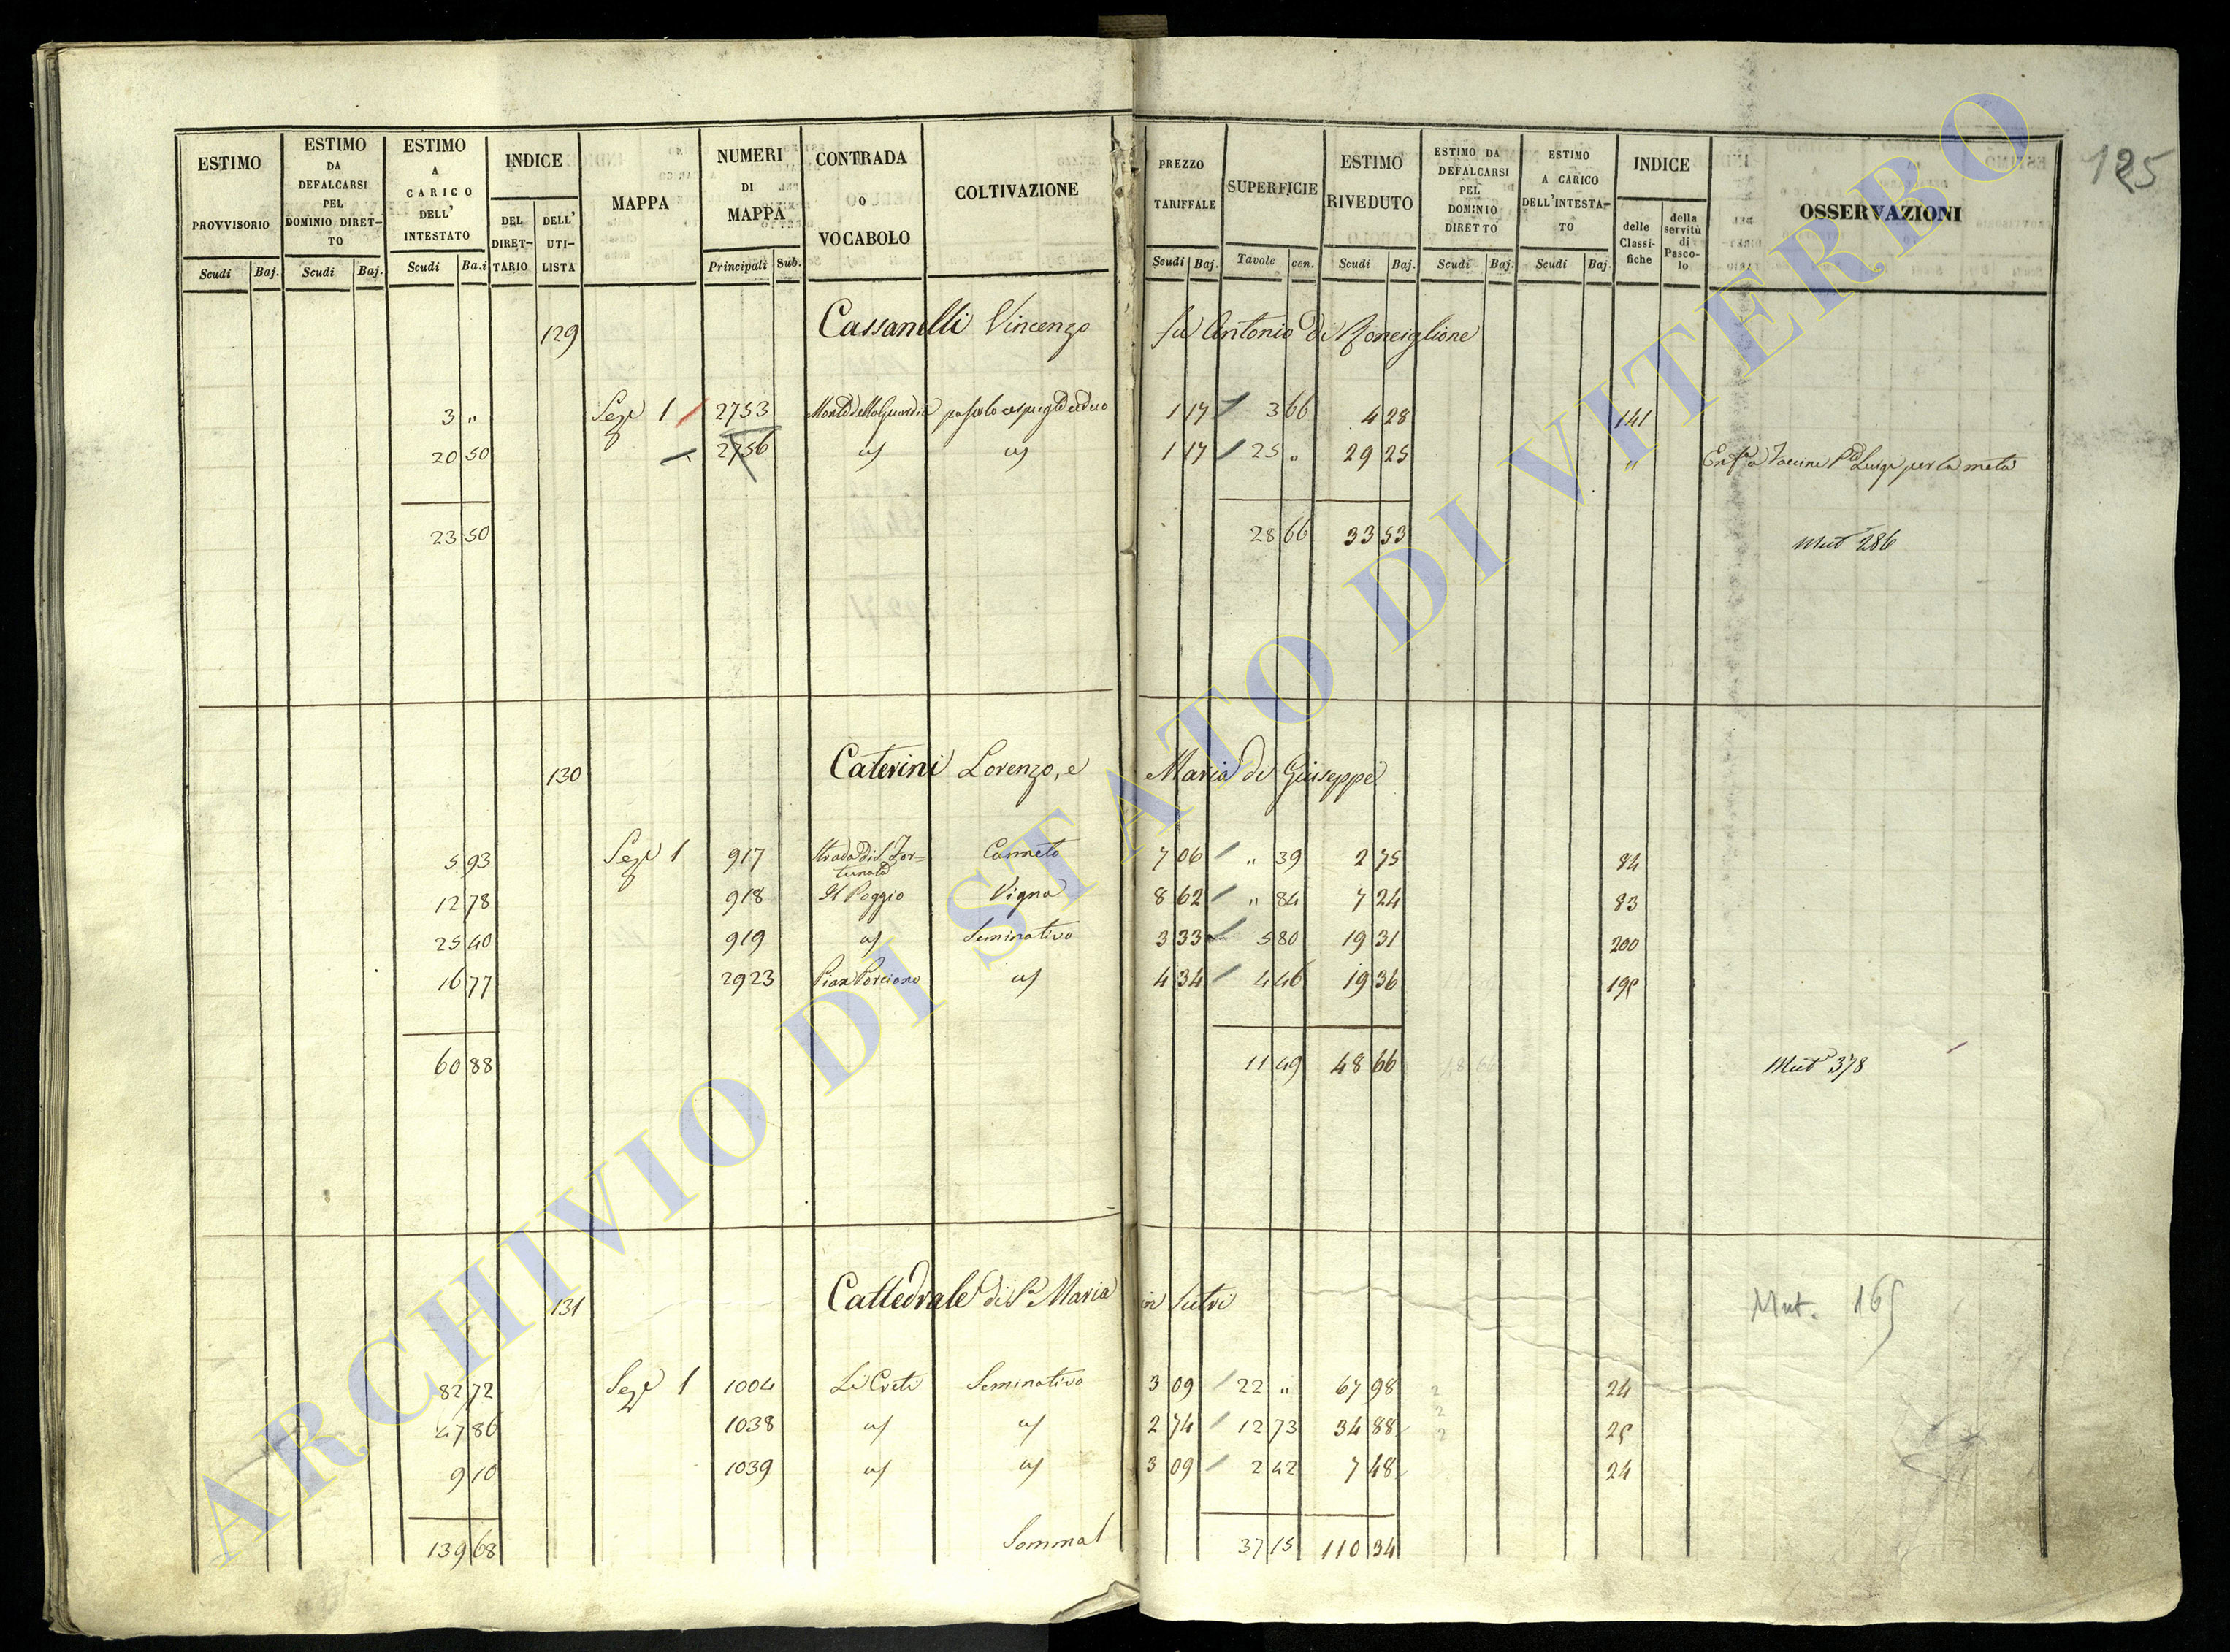 125
ESTIMO PROVVISORIO Scudi Baj.
ESTIMO DA DEFALCARSI PEL DOMINIO DIRET-TO Scudi Baj.
ESTIMO A CARICO DELL' INTESTATO Scudi Ba.i
INDICE DEL DIRET-TARIO DELL' UTI-LISTA
MAPPA
NUMERI DI MAPPA Principali Sub.
CONTRADA O VOCABOLO
COLTIVAZIONE
PREZZO TARIFFALE Scudi Baj.
SUPERFICIE Tavole cen.
ESTIMO RIVEDUTO Scudi Baj.
ESTIMO DA DEFALCARSI PEL DOMINIO DIRETTO Scudi Baj.
ESTIMO A CARICO DELL'INTESTA-TO Scudi Baj.
INDICE delle Classi-fiche della servitù di Pasco-lo
OSSERVAZIONI
129 Cassanelli Vincenzo fu Antonio di Ronciglione
3 " Sez 1 2753 pascolo 1 17 3 66 4 28 141
20 50 2756 1 17 25 " 29 25 " Luigi per la metà
23 50 28 66 33 53 Mut 286
130 Caterini Lorenzo, e Maria di Giuseppe
5 93 Sez 1 917 Strada di S. For=tunata Canneto 7 06 " 39 2 75 84
12 78 918 Il Poggio Vigna 8 62 " 84 7 24 83
25 40 919 Seminativo 3 33 5 80 19 31 200
16 77 2923 Pian Porciano 4 34 4 46 19 36 195
60 88 11 49 48 66 Mut 378
131 Cattedrale di Sa Maria in Sutri Mut. 165
82 72 Sez 1 1004 Li Creti Seminativo 3 09 22 " 67 98 24
47 86 1038 2 74 12 73 34 88 25
9 10 1039 3 09 2 42 7 48 24
139 68 Somma 37 15 110 34
ARCHIVIO DI STATO DI VITERBO